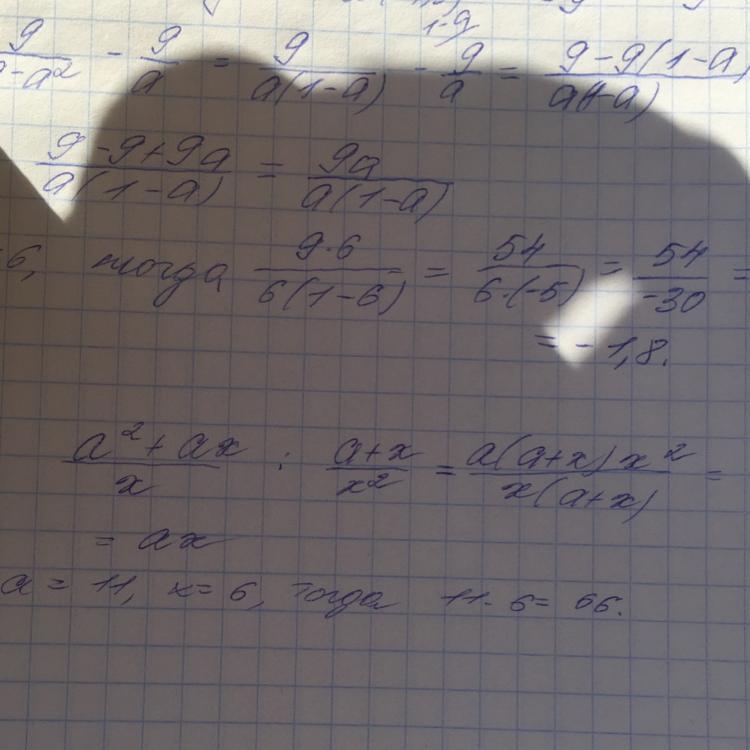 1-a
9/(a-a²) - 9/a = 9/(a(1-a)) - 9/a = (9-9(1-a))/(a(1-a))
(9-9+9a)/(a(1-a)) = 9a/(a(1-a))
6, тогда (9·6)/(6(1-6)) = 54/(6·(-5)) = 54/-30 =
= -1,8.
(a²+ax)/x : (a+x)/x² = (a(a+x)x²)/(x(a+x)) =
= ax
a = 11, x = 6, тогда 11·6 = 66.